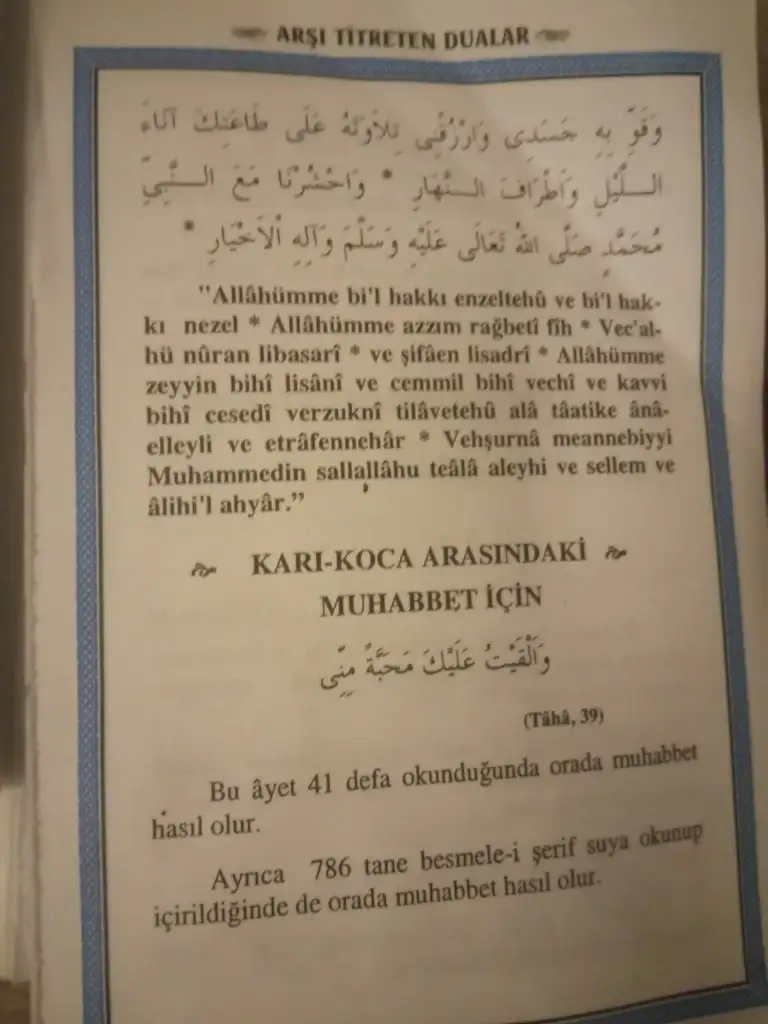 ARŞI TİTRETEN DUALAR
وَقَوِّ بِهِ جَسَدِى وَارْزُقْنِى تِلَاوَتَهُ عَلَى طَاعَتِكَ آنَاءَ
اللَّيْلِ وَاَطْرَافَ النَّهَارِ * وَاحْشُرْنَا مَعَ النَّبِيِّ
مُحَمَّدٍ صَلَّى اللهُ تَعَالَى عَلَيْهِ وَسَلَّمَ وَآلِهِ الْاَخْيَارِ *
"Allâhümme bi'l hakkı enzeltehû ve bi'l hak-
kı nezel * Allâhümme azzım rağbetî fîh * Vec'al-
hü nûran libasarî * ve şifâen lisadrî * Allâhümme
zeyyin bihî lisânî ve cemmil bihî vechî ve kavvi
bihî cesedî verzuknî tilâvetehû alâ tâatike ânâ-
elleyli ve etrâfennehâr * Vehşurnâ meannebiyyi
Muhammedin sallallâhu teâlâ aleyhi ve sellem ve
âlihi'l ahyâr."
KARI-KOCA ARASINDAKİ
MUHABBET İÇİN
وَاَلْقَيْتُ عَلَيْكَ مَحَبَّةً مِنِّى
(Tâhâ, 39)
Bu âyet 41 defa okunduğunda orada muhabbet
hasıl olur.
Ayrıca 786 tane besmele-i şerif suya okunup
içirildiğinde de orada muhabbet hasıl olur.